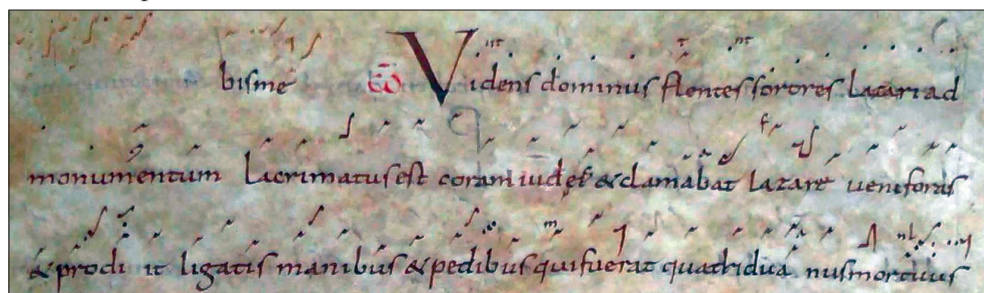 bisme CO Videns dominus flentes sorores lazari ad
monumentum lacrimatus est coram iudeis & clamabat lazare veni foras
& prodi it ligatis manibus & pedibus qui fuerat quatridua nus mortuus